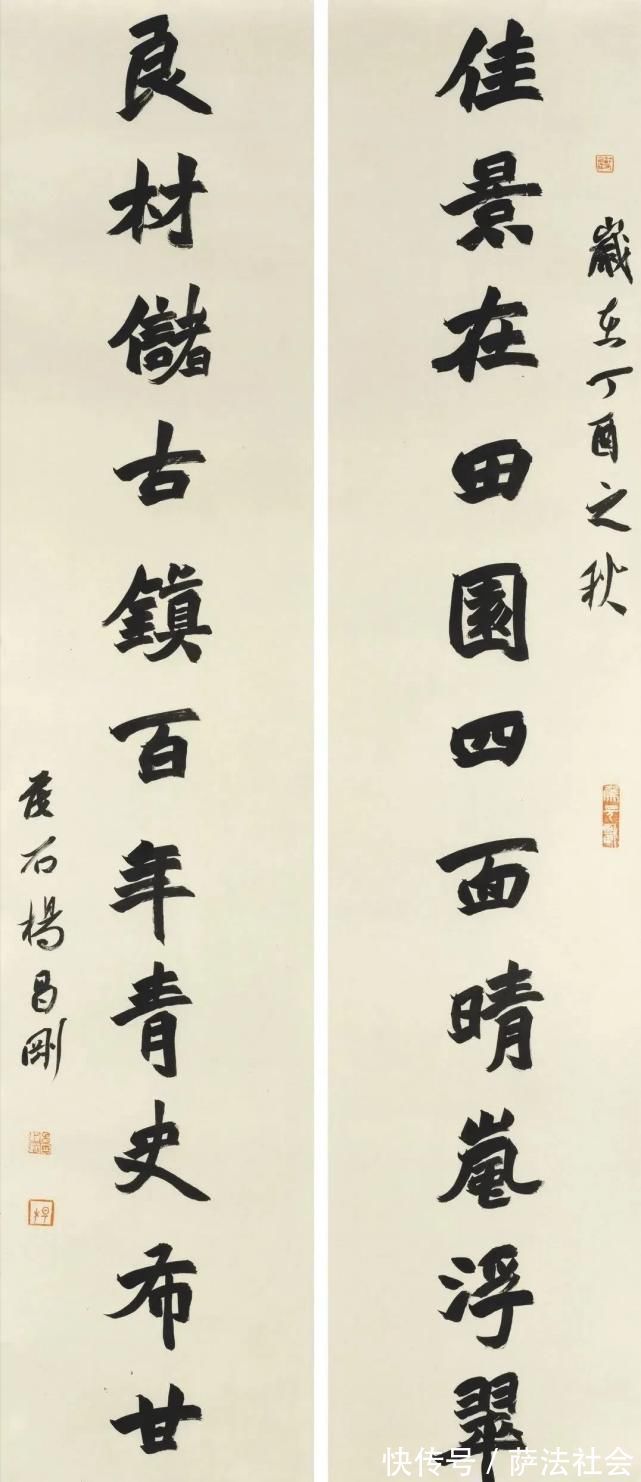 歲在丁酉之秋
佳景在田園四面晴嵐浮翠
良材儲古鎮百年青史布甘
石楊昌剛
快传号 / 萨法社会